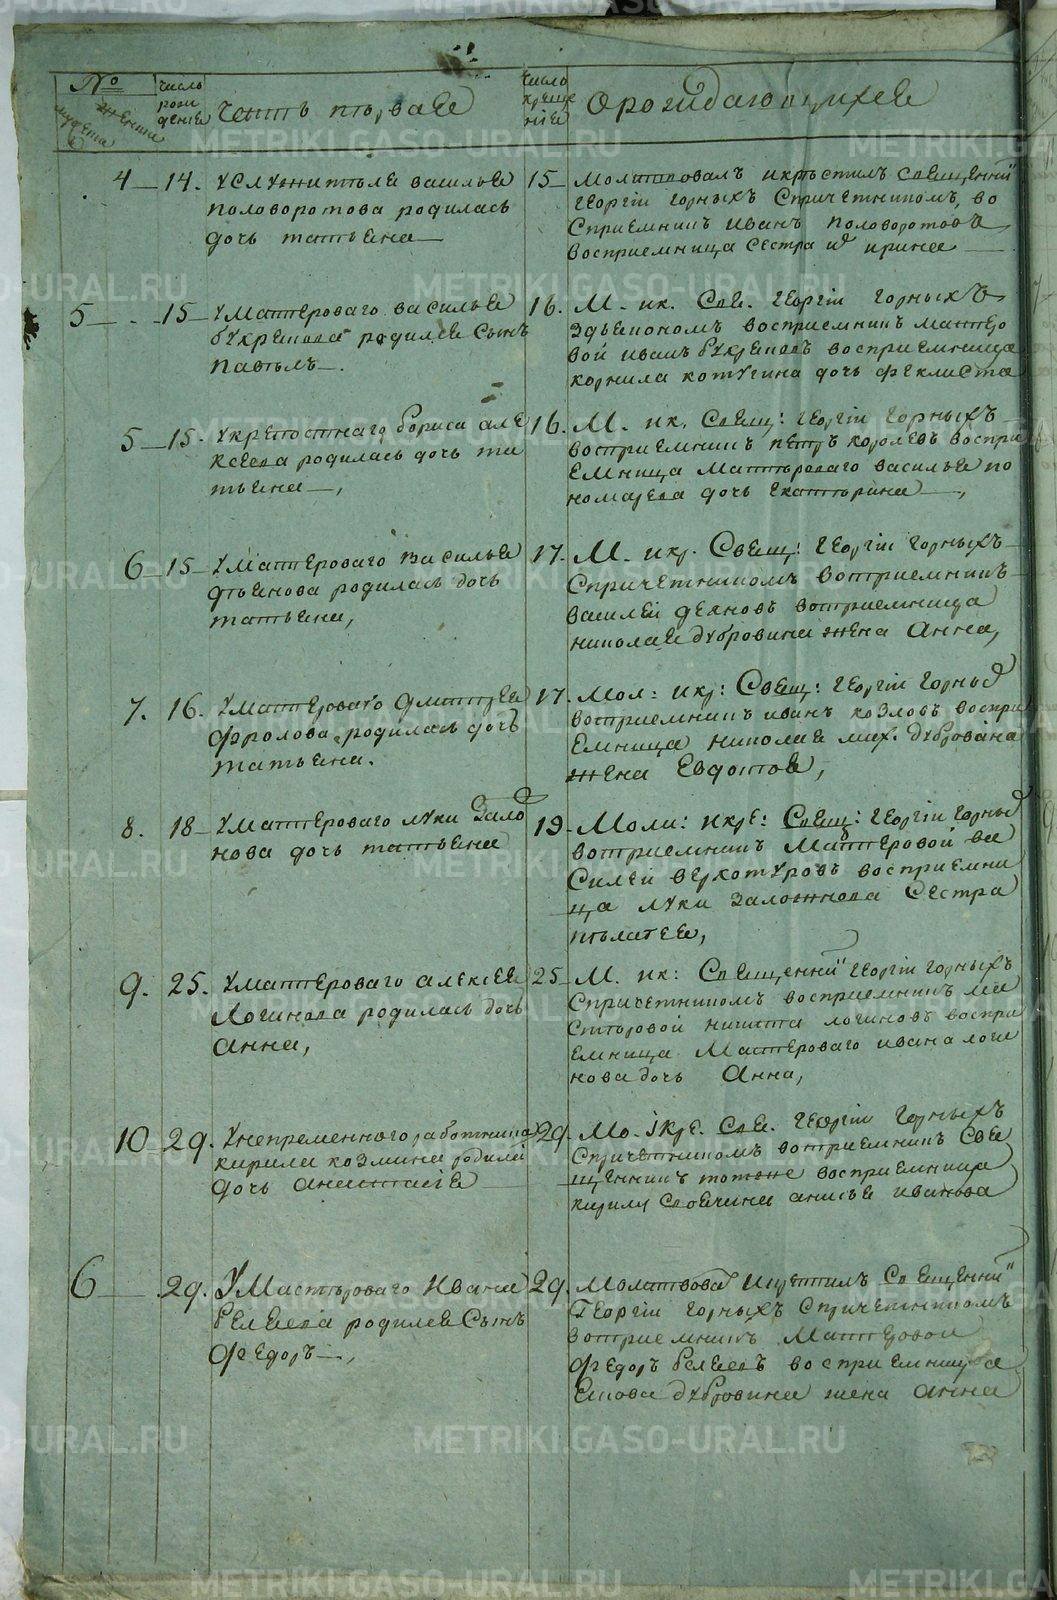 №
мужеска
женска
число рожденіе
Часть перьвая
число крещеніе
о рождающихся
4 — 14.
у служителя василья
половоротова родилась
дочь татьяна —
15
молитвовалъ и крестилъ священни
георгіи горныхъ с причетникомъ, во
сприемникъ иванъ половоротовъ
восприемница сестра и
5 — 15
у мастероваго василья
букрепова родился сынъ
павелъ —.
16.
М. ик. Све. георгіи горныхъ
з дьякономъ восприемникъ мастеро
вой иванъ букреповъ восприемница
корнила котугина дочь феклиста
5 — 15.
у крепостнаго бориса але
ксеева родилась дочь та
тьяна —,
16.
М. ик. Свещ: георгіи горныхъ
востприемникъ петръ королевъ воспри
емница мастероваго василья по
номарева дочь екатерина —,
6 — 15
у мастероваго василья
деянова родилась дочь
татьяна,
17.
М. икр. Свещ: георгіи горныхъ
с причетникомъ востприемникъ
василей деяновъ востприемница
николая дубровина жена анна,
7. 16.
у мастероваго дмитрея
фролова родилась дочь
татьяна.
17.
Мол: икр: Свещ: георгіи горны
востприемникъ иванъ козловъ воспри
емница николая мих. дубровина
жена Евдотья,
8. 18
у мастероваго луки зало
нова дочь татьяна
19.
Моли: икре: Свещ: георгіи горны
востприемникъ мастеровой ва
силей верхотуровъ восприемни
ца луки заложнова сестра
пелагея,
9. 25.
у мастероваго алексея
логинова родилась дочь
анна,
25
М. ик: Священни георгіи горныхъ
с причетникомъ восприемникъ ма
стеровой никита логиновъ воспри
емница мастероваго ивана логи
нова дочь анна,
10 29.
у непременного работника
кирила козмина родила
дочь анастасія
29.
Мо. ікре. Све. георгіи горныхъ
с причетникомъ востприемникъ свя
щенникъ тотже восприемница
кирилы анисья иванова
6 — 29.
У Мастероваго Ивана
беляева родился Сынъ
Федоръ —,
29.
Молитвова и крестилъ Священни
Георгіи горныхъ с причетникомъ
востприемникъ мастеровой
федоръ беляевъ восприемница
дубровина жена анна